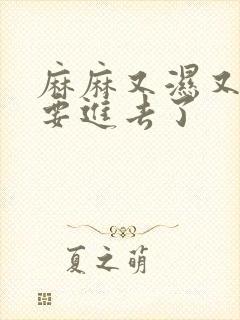 麻麻又濕又
要進去了
夏之萌